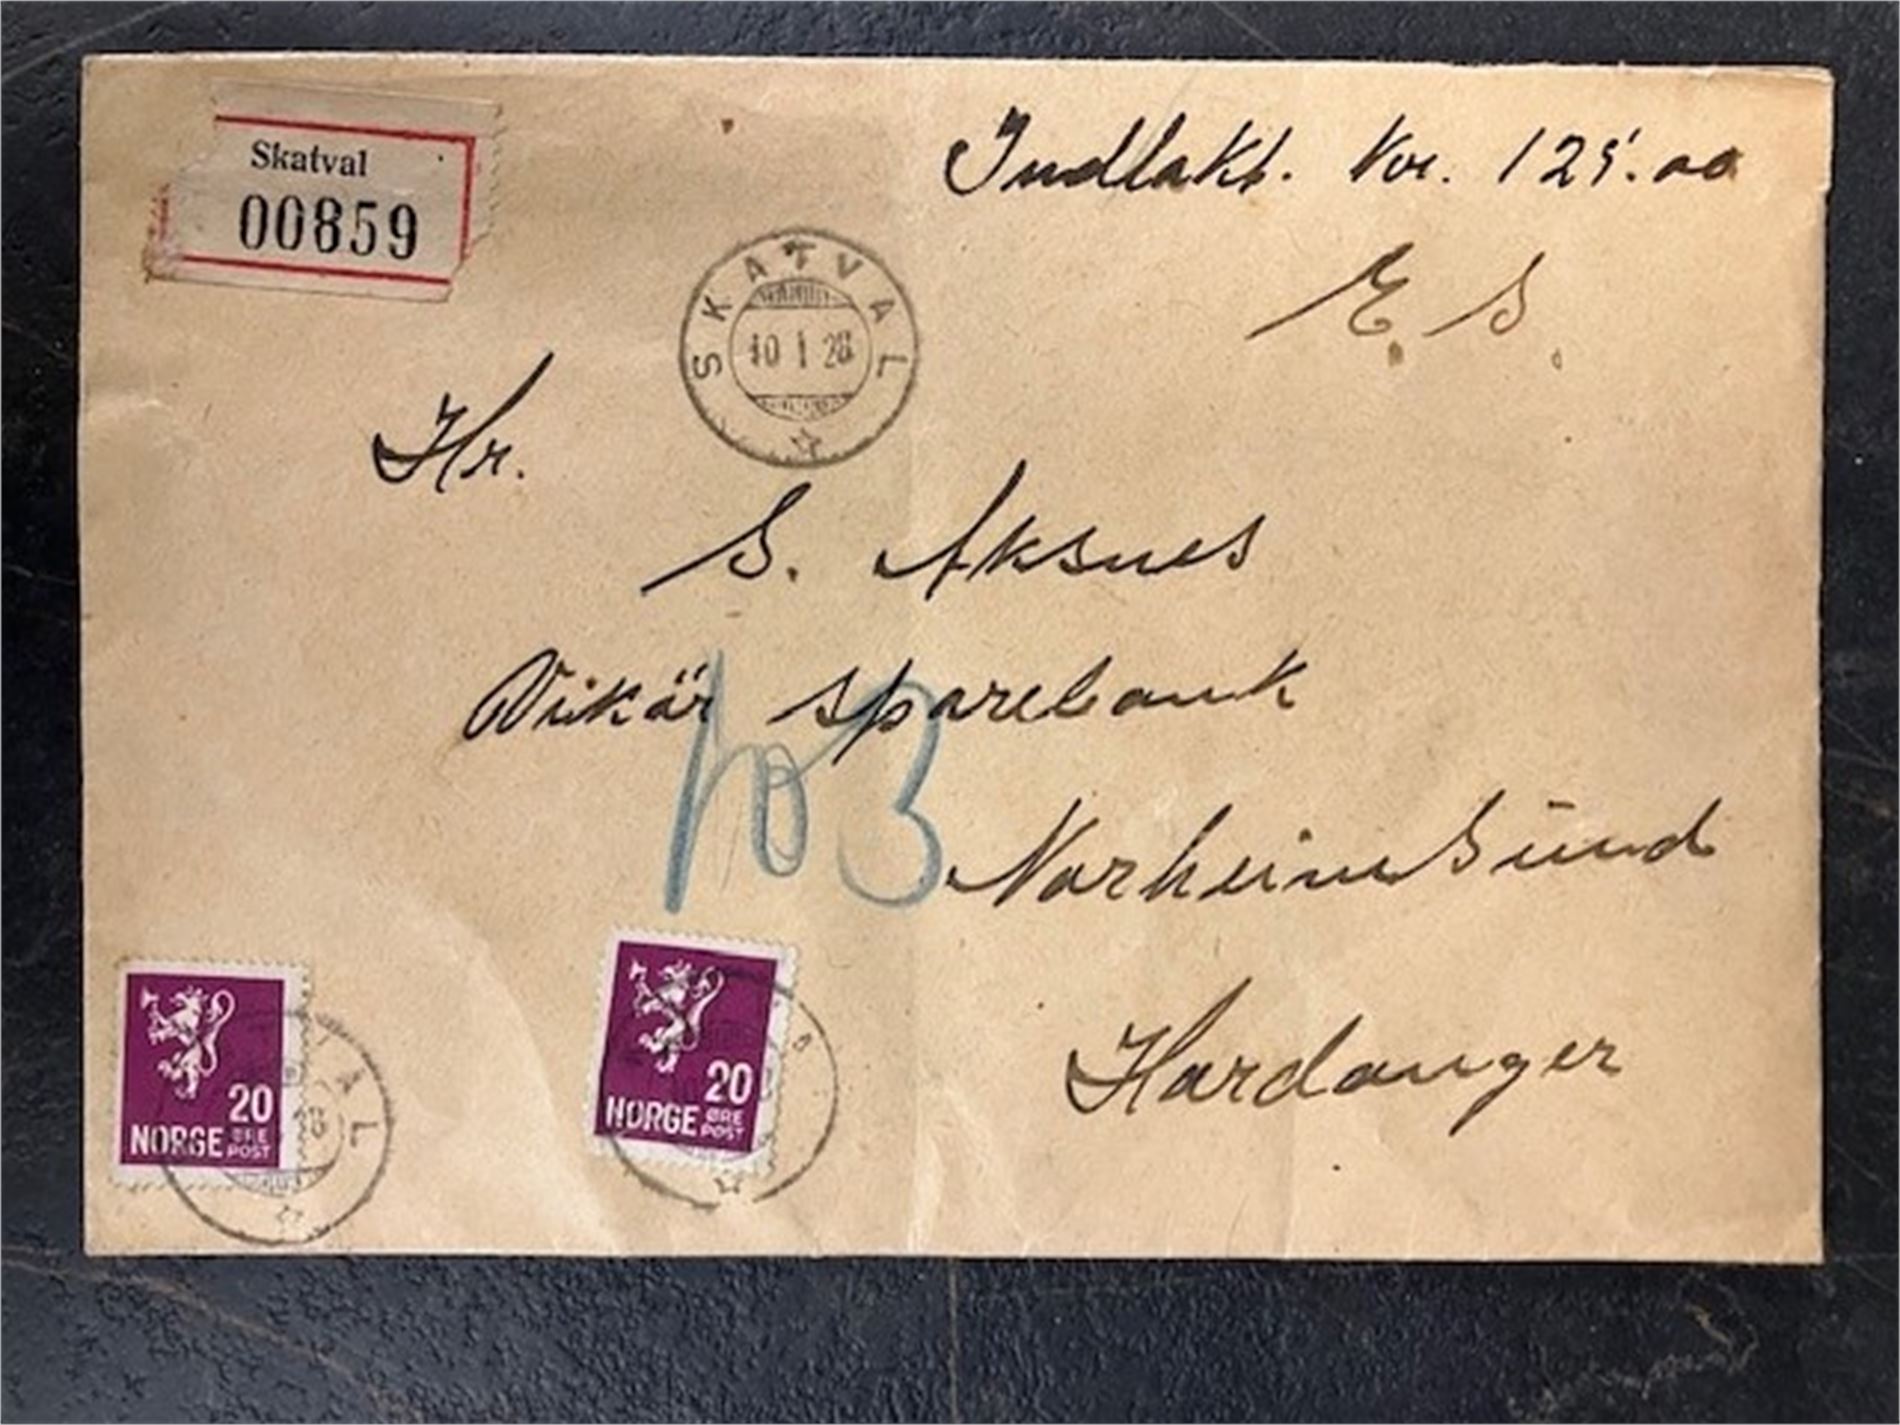 Skatval
00859
Indlakt. Kr. 125.00
E. S.
SKATVAL
10 I 28
Hr.
S. Aksnes
Vikør sparebank
103
Norheimsund
Hardanger
20
NORGE ØRE
POST
20
NORGE ØRE
POST